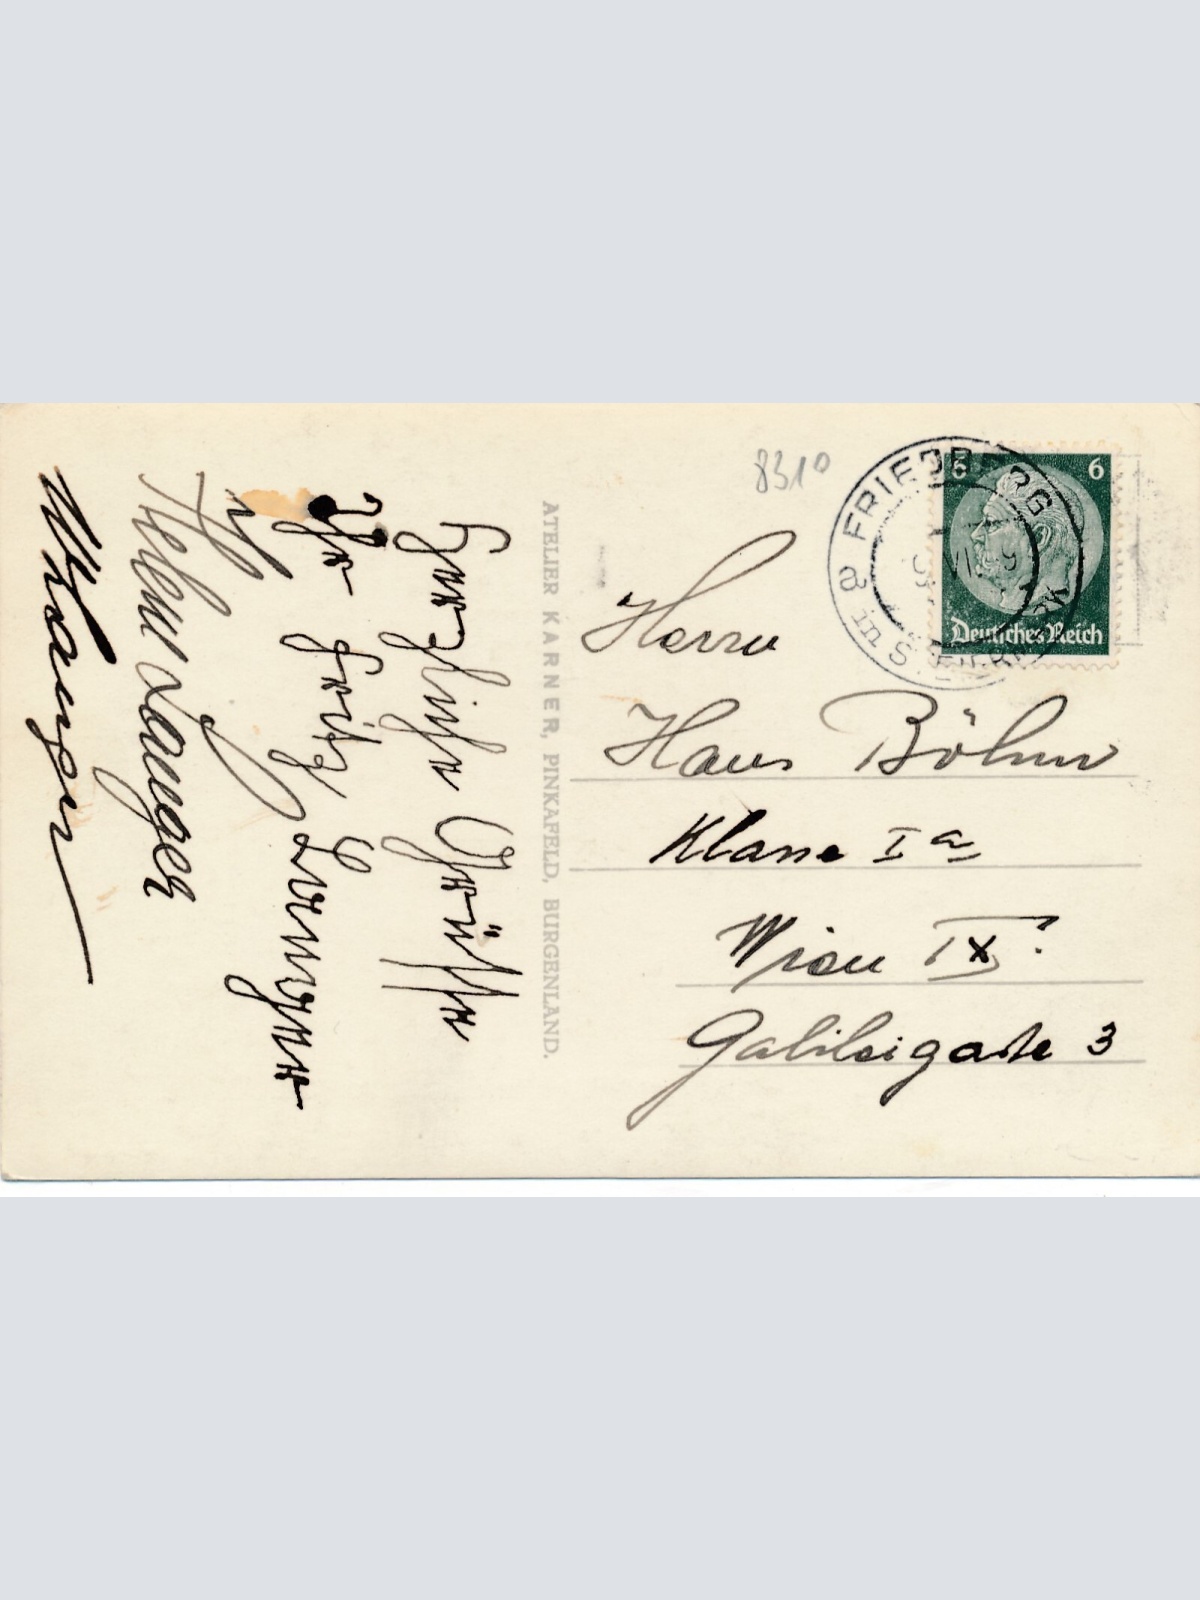 Herzliche Grüsse
Ihr Fritz Langer
Helene Langer
Langer
ATELIER KARNER, PINKAFELD, BURGENLAND.
8310
FRIEDBERG
in STEIERM
6 6
Deutsches Reich
Herrn
Hans Böhm
Klasse Ia
Wien IX.
Galileigasse 3